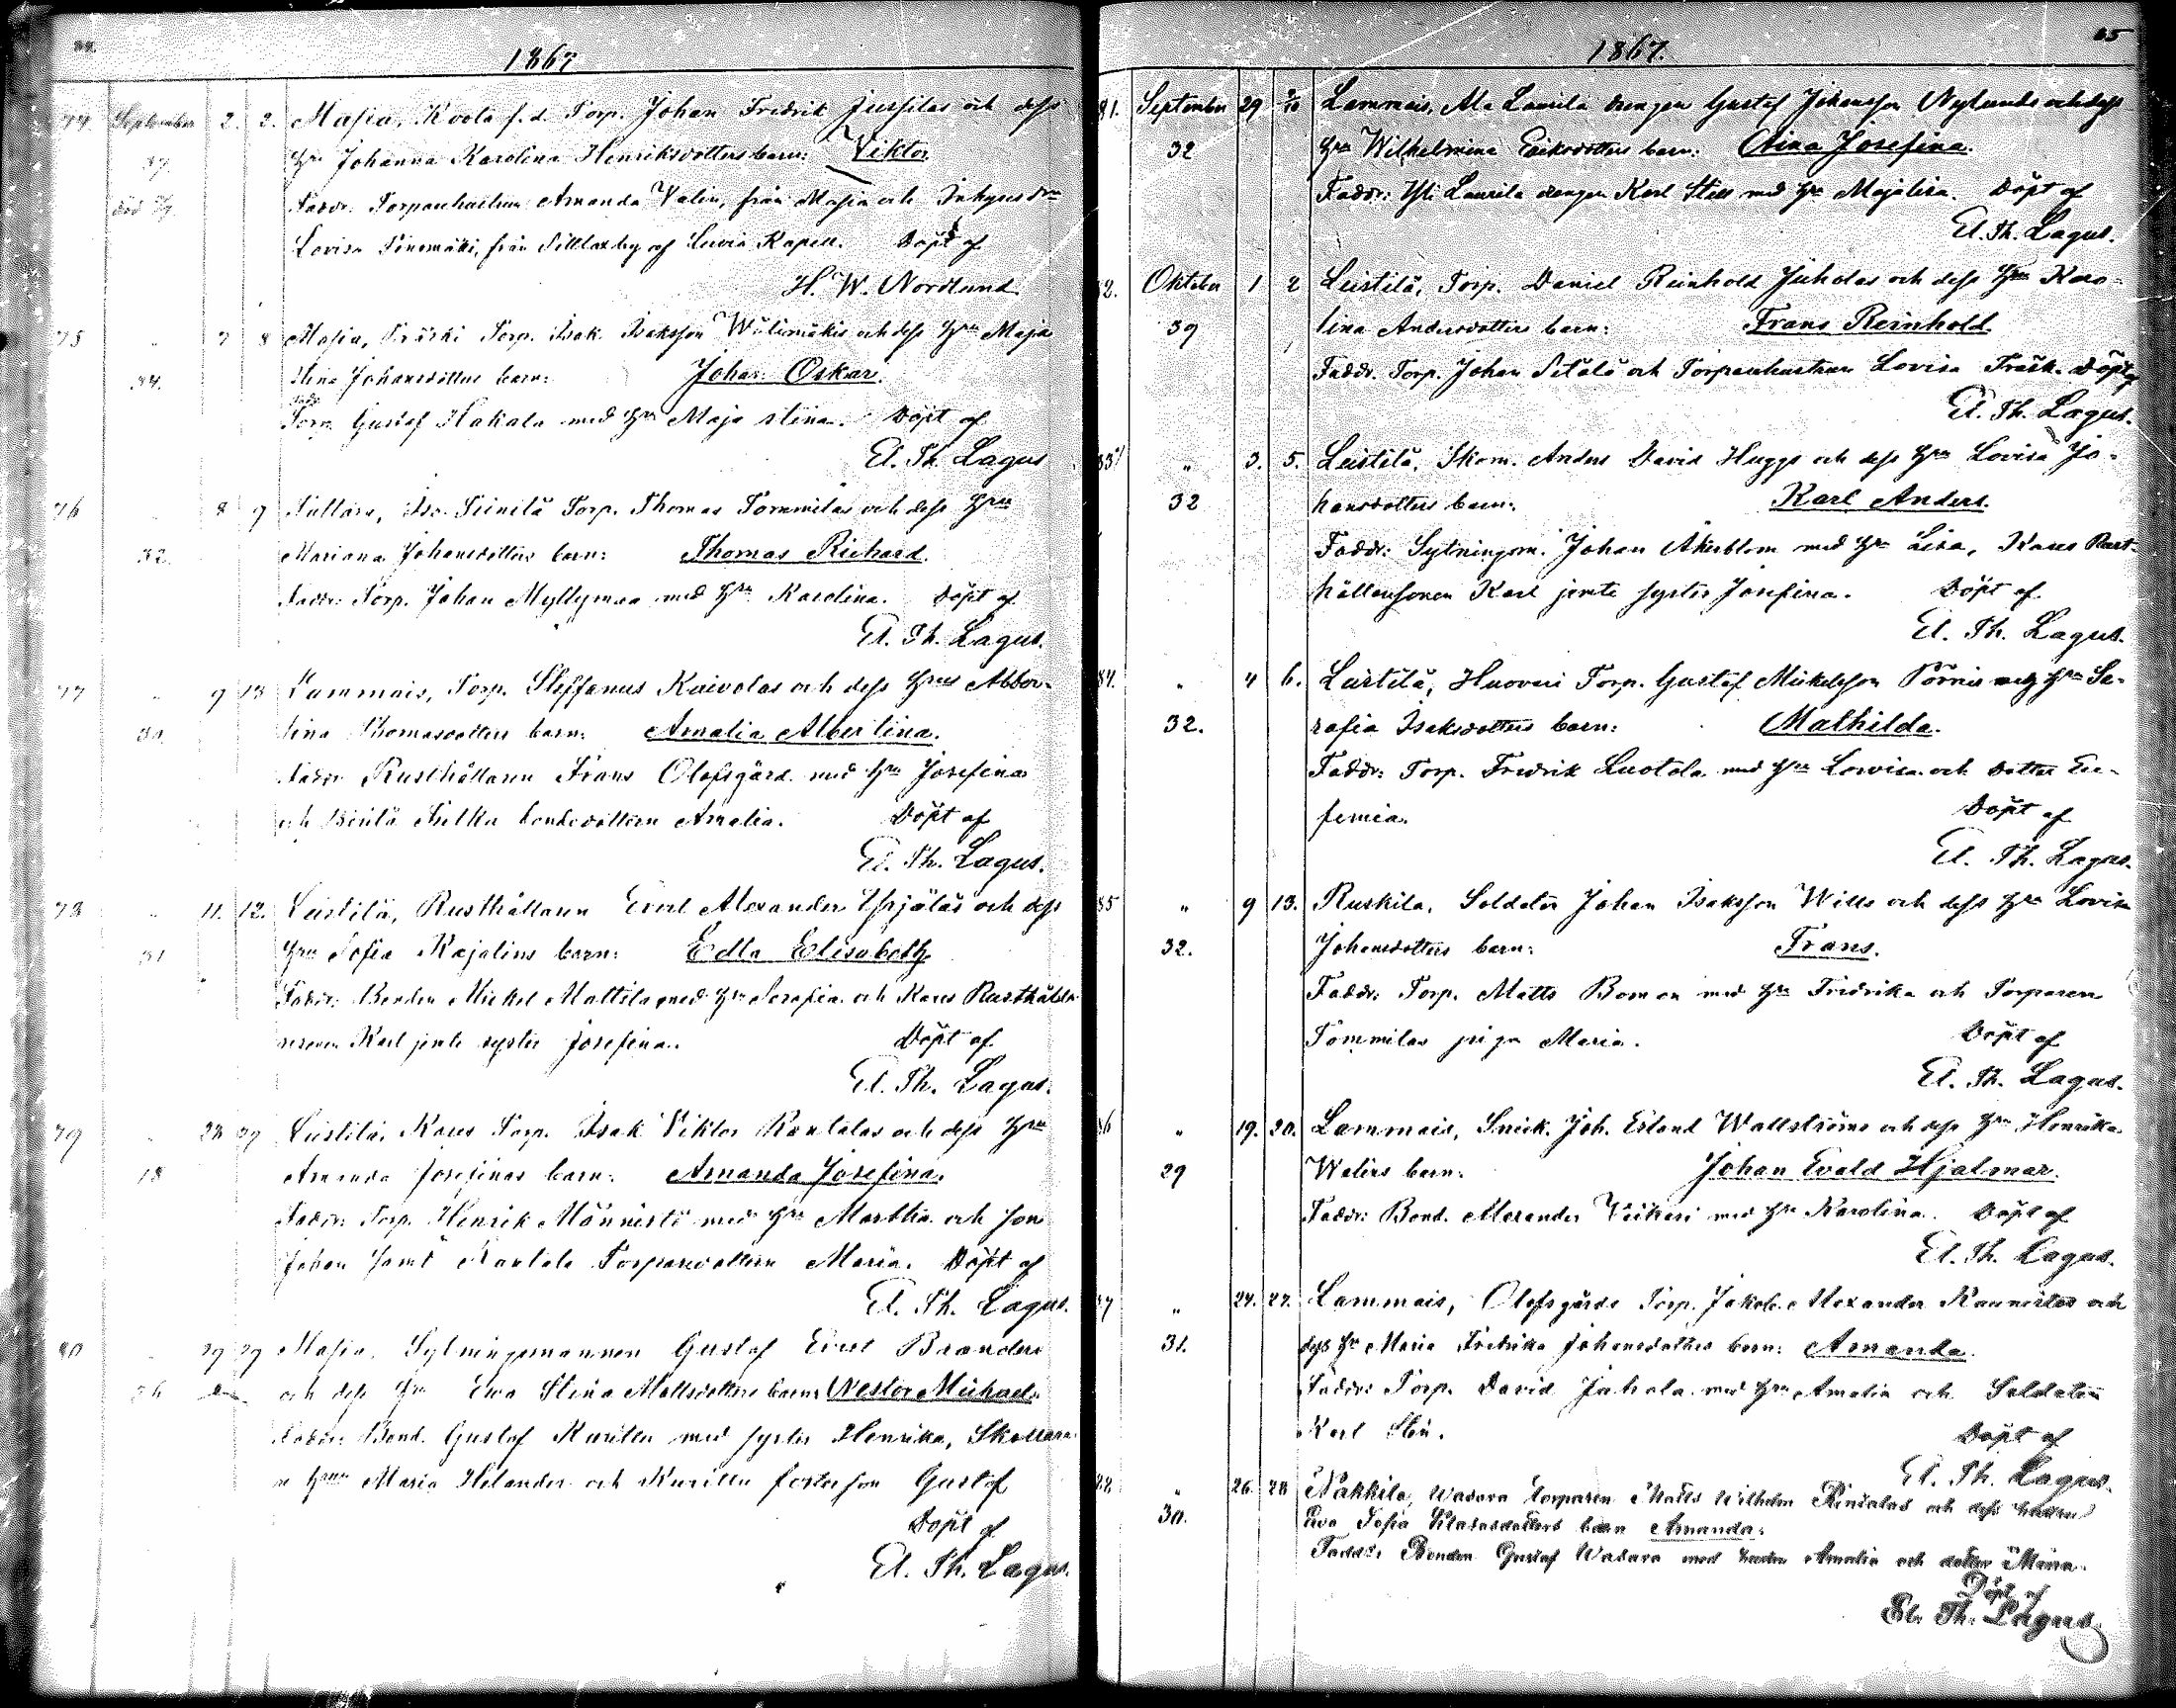 1867
74. September 2. 2. Masia, Koota f. d. Torp. Johan Fredrik Jussilas och dess
37. Hru Johanna Karolina Henriksdotters barn: Viktor
död Faddr. Torparehustrun Amanda Valin, från Masia och Inhyses
Lovisa från by af Luvia Kapell. Döpt af
H. W. Nordlund
75 " 7 8 Masia, Torp. Isak Isaksson och dess Hru Maja
34. Stina Johansdotters barn: Johan Oskar.
Faddr.
Torp. Gustaf Hakala med Hru Maja Stina. Döpt af
El. Th. Lagus
76 8 9 Torp. Thomas Tommilas och dess Hru
32. Mariana Johansdotters barn: Thomas Richard.
Faddr: Torp. Johan Myllymaa med Hru Karolina. Döpt af
El. Th. Lagus.
77 " 9 13 Lammais, Torp. Steffanus Kaivolas och dess Hrus Alber-
tina Thomasdotters barn: Amalia Albertina.
Faddr Rusthållaren Frans Olofsgård med Hru Josefina
och bondedottern Amalia. Döpt af
El. Th. Lagus.
78 " 11. 12. Leistilä, Rusthållaren Ernst Alexander Yrjäläs och dess
31 Hru Sofia Kajalins barn: Edla Elisabeth
Faddr: Bonden Mickel Mattila med Hru Serafia och Karus Rusthålla-
resonen Karl jemte syster Josefina. Döpt af
El. Th. Lagus.
79 " 28 29 Leistilä, Karus Torp. Isak Viktor Rantalas och dess Hru
18 Amanda Josefinas barn: Amanda Josefina.
Faddr: Torp. Henrik Männistö med Hru Martha och son
Johan samt Rantala Torparedottern Maria. Döpt af
El. Th. Lagus.
80 " 29 29 Masia, Sytningsmannen Gustaf Ernst Branders
36 och dess Hru Ewa Stina Mattsdotters barn: Nestor Michael.
Faddr: Bond. Gustaf Kurittu med syster Henrika,
Hrun Maria Helander och Kurittu fosterson Gustaf
Döpt af
El. Th. Lagus.
65
1867.
81. September 29 2/10 Lammais, Ala Laurila drengen Gustaf Johansson Nylunds och dess
32 Hru Wilhelmina Eriksdotters barn: Aina Josefina.
Faddr: Yli Laurila drengen Karl Sten med Hru Majalisa. Döpt af
El. Th. Lagus.
82. Oktober 1 2 Leistilä, Torp. Daniel Reinhold Juholas och dess Hru Karo-
39 lina Andersdotters barn: Frans Reinhold.
Faddr. Torp. Johan Sitälä och Torparehustrun Lovisa Träsk. Döpt af
El. Th. Lagus.
83 " 3. 5. Leistilä, Skom. Anders David Huggs och dess Hru Lovisa Jo-
32 hansdotters barn: Karl Anders.
Faddr: Sytningsm. Johan Åkerblom med Hru Lisa, Karus Rust-
hållaresonen Karl jemte syster Josefina. Döpt af
El. Th. Lagus.
84. " 4 6. Leistilä, Huovari Torp. Gustaf Mickelsson Törnis med Hru Se-
32. rafia Isaksdotters barn: Mathilda.
Faddr: Torp. Fredrik Luotola med Hru Lovisa och dotter Eu-
femia. Döpt af
El. Th. Lagus.
85 " 9 13. Ruskila, Soldaten Johan Isaksson Wills och dess Hru Lovisa
32. Johansdotters barn: Frans.
Faddr: Torp. Matts Boman med Hru Fredrika och Torparen
Tommilas piga Maria. Döpt af
El. Th. Lagus.
86 " 19. 20. Lammais, Snick. Joh. Erland Wallströms och dess Hru Henrika
29 Walins barn: Johan Evald Hjalmar.
Faddr: Bond. Alexander Viikari med Hru Karolina. Döpt af
El. Th. Lagus.
87 " 24. 27. Lammais, Olofsgårds Torp. Jakob Alexander Kannistos och
31. dess Hr Maria Fredrika Johansdotters barn: Amanda.
Faddr: Torp. David Juhola med Hru Amalia och Soldaten
Karl Sten. Döpt af
El. Th. Lagus.
88 " 26. 28 Nakkila, Wasara torparen Matts Wilhelm Rintalas och dess hustru
30. Eva Sofia barn Amanda.
Faddr. Bonden Gustaf Wasara med hustru Amalia och dotter Maria.
Döpt af
El. Th. Lagus.